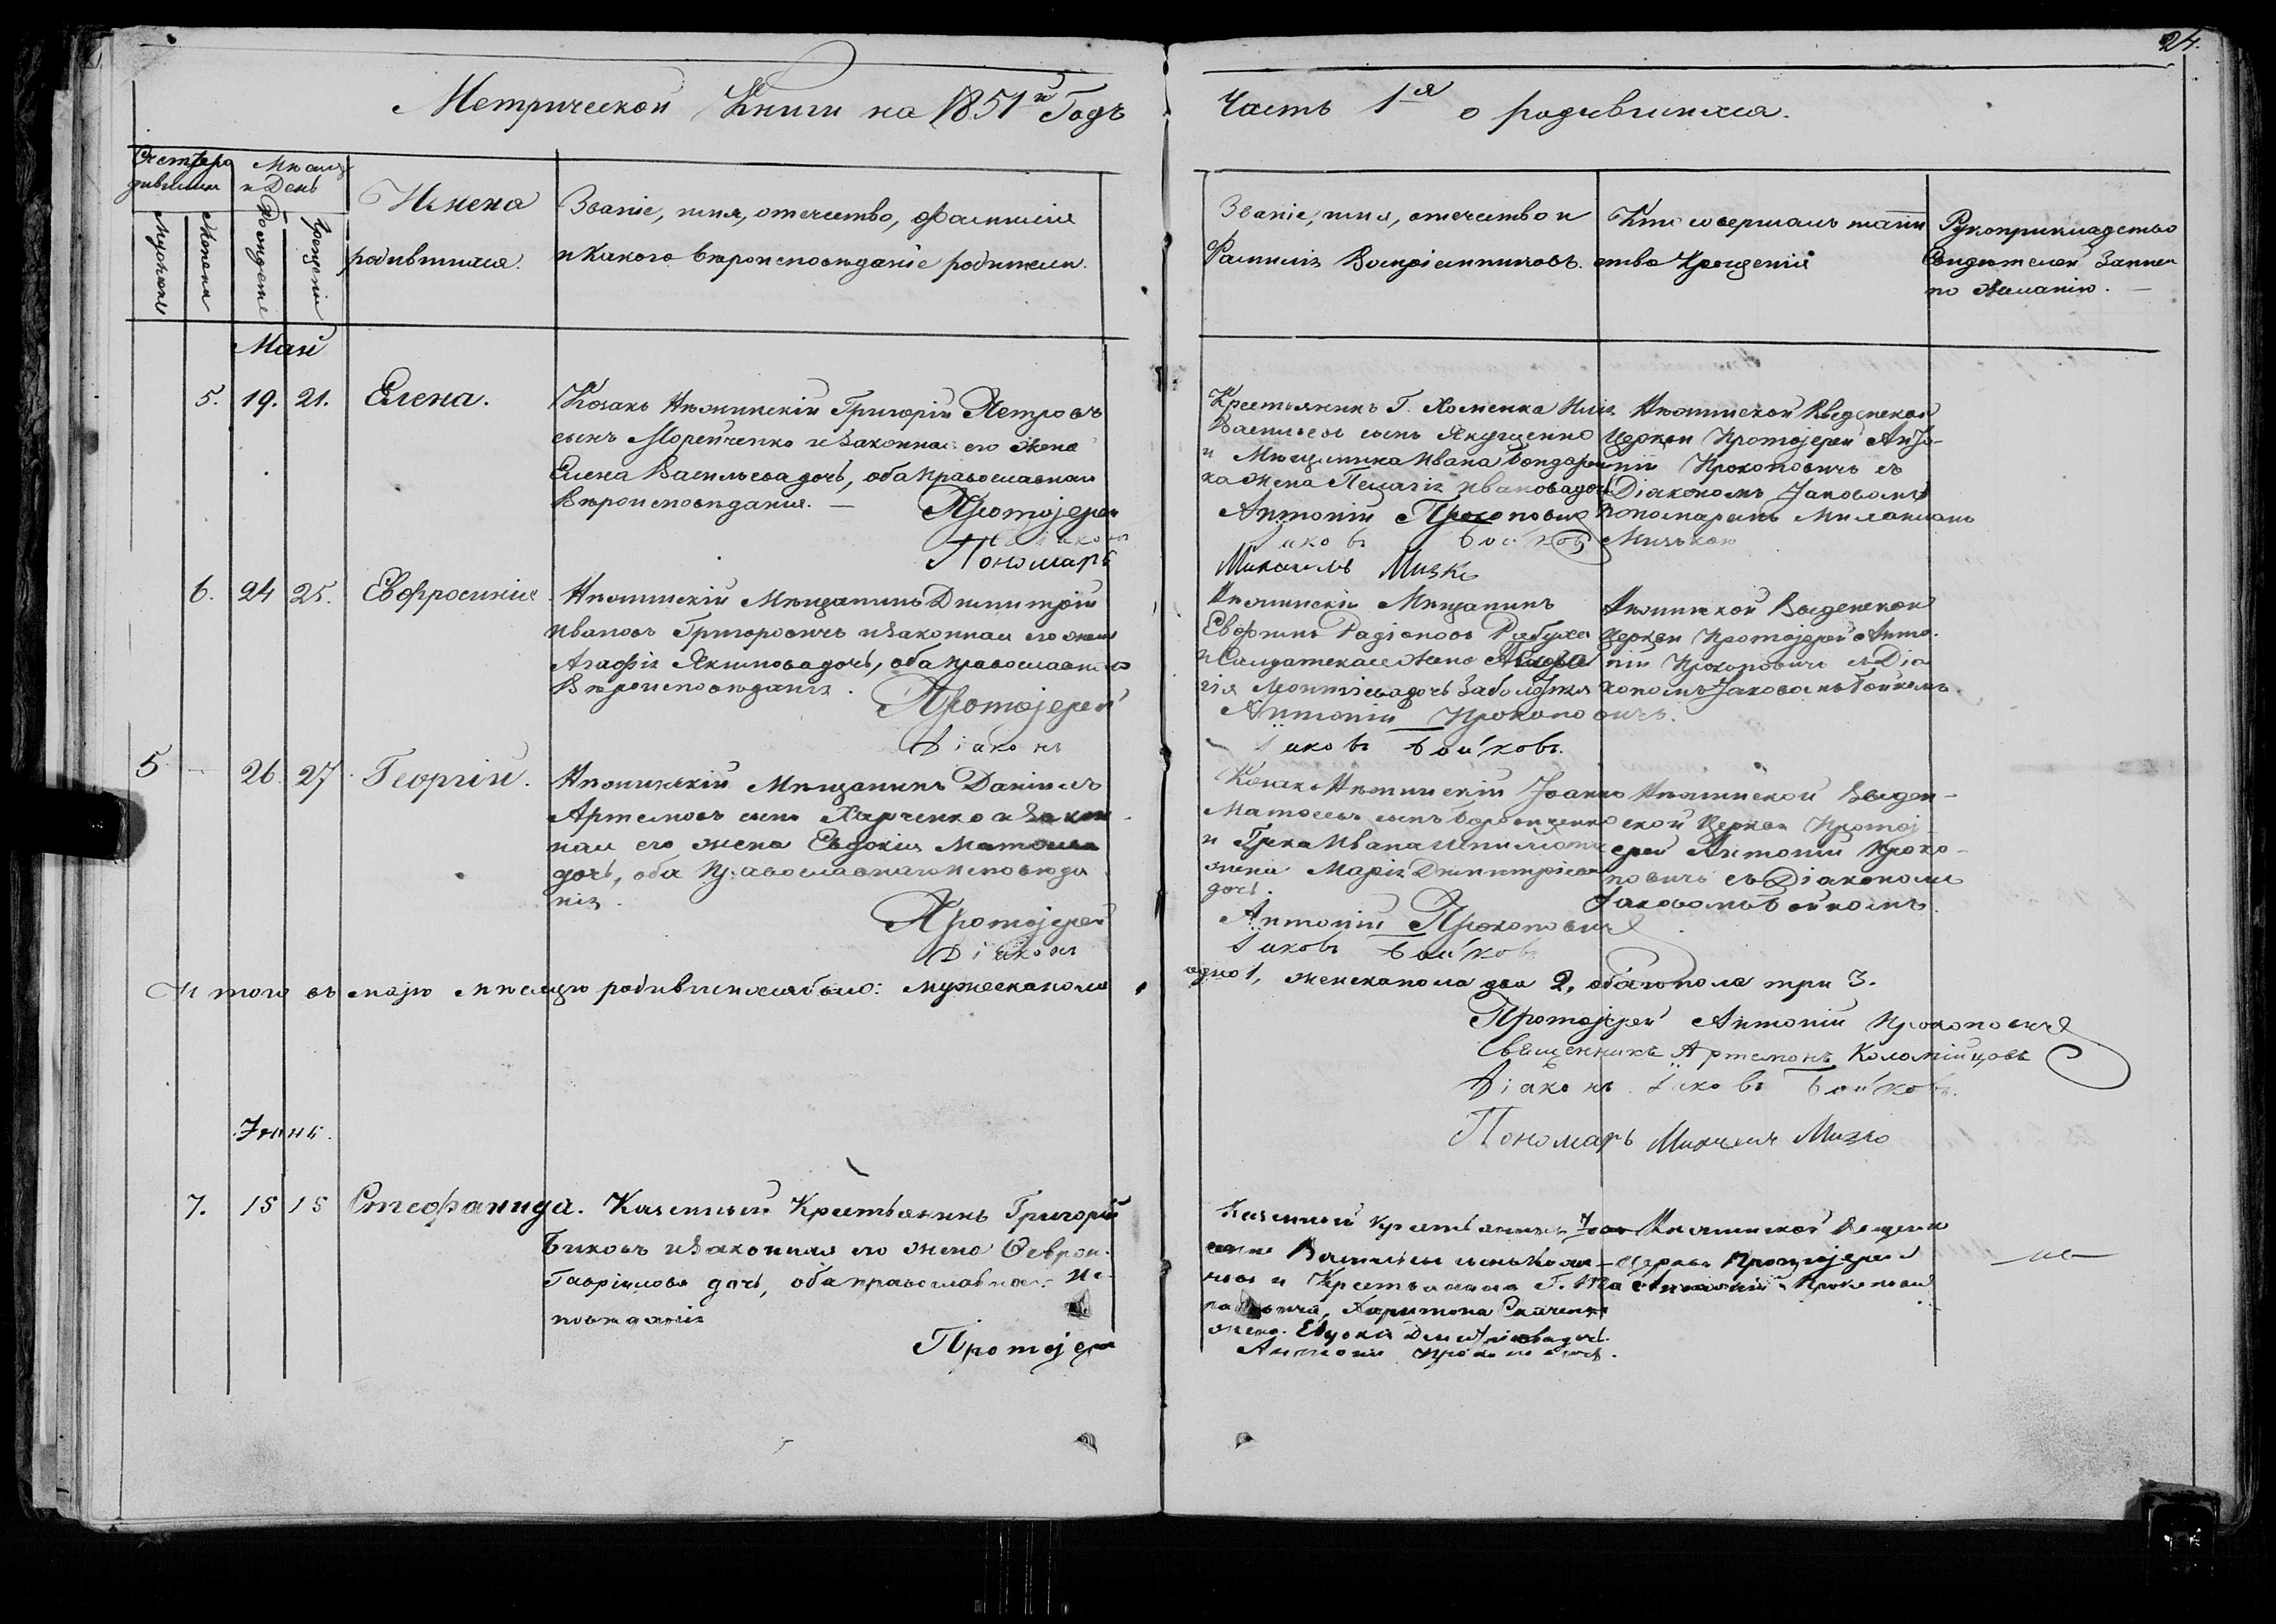 24.
Метрической Книги на 1851й Годъ
Часть 1я о родившихся.
Счетъ родившихся
Мѣсяцъ и День
Мужеска
Женска
Рожденіе
Крещеніе
Имена
родившихся.
Званіе, имя, отечество, фамилія
и какого вѣроисповѣданіе родители.
Званіе, имя, отечество и
Фамилія Воспріемниковъ.
Кто совершалъ таин
ство Крещенія
Рукоприкладство
Свидѣтелей Записи
по желанію.
Май
5. 19. 21. Елена.
Козакъ Нѣжинскій Григорій Петровъ
сынъ Морейченко и Законная его жена
Елена Васильева дочь, оба православнаго
Вѣроисповѣданія. —
Протоіерей
Діаконъ
Пономарь
Крестьянинъ Г. Хоменка Илія
Васильевъ сынъ Якущенко
и Мѣщанина Ивана Бондарен
ка жена Пелагія Иванова дочь
Антоній Прокоповичъ
Іаковъ Бойковъ
Михаилъ Мизко
Нѣжинской Введенской
Церкви Протоіерей Анто-
ній Прокоповичъ съ
Діакономъ Іаковомъ
Пономаремъ Михаиломъ
Мизькою
6. 24 25. Евфросинія
Нѣжинскій Мѣщанинъ Димитрій
Ивановъ Григоровичъ и Законная его жена
Агафія Якимова дочь, оба православнаго
Вѣроисповѣданія.
Протоіерей
Діаконъ
Нѣжинскій Мѣщанинъ
Евфимъ Радіоновъ Рябуха
и Солдатская жена
гія дочь
Антоній Прокоповичъ.
Іаковъ Бойковъ.
Нѣжинской Введенской
Церкви Протоіерей Анто-
ній Прокоповичъ съ Діа
кономъ Іаковомъ Бойкомъ
5 — 26. 27. Георгій.
Нѣжинскій Мѣщанинъ Даніилъ
Артемовъ сынъ Харченко и Закон-
ная его жена Евдокія Матѳеева
дочь, оба Православнаго исповѣда
нія.
Протоіерей
Діаконъ
Козакъ Нѣжинскій Іоаннъ
Матѳеевъ сынъ
и Грека Ивана
жена Марія Димитріева
дочь.
Антоній Прокоповичъ
Іаковъ Бойковъ
Нѣжинской Введен-
ской Церкви Протоі-
ерей Антоній Проко-
повичъ съ Діакономъ
Іаковомъ Бойкомъ.
Итого въ маѣ мѣсяцѣ родившихся было: мужеска пола
одно 1, женска пола два 2, обаго пола три 3.
Протоіерей Антоній Прокоповичъ
Священникъ Артемонъ Коломійцовъ
Діаконъ Іаковъ Бойковъ.
Пономарь Михаилъ Мизко
Іюнь.
7. 15 15 Стефанида.
Казенный Крестьянинъ Григорій
Биковъ и Законная его жена Феврон.
Гавріилова дочь, оба православнаго Ис-
повѣданія
Протоіерей
Казенный Крестьянинъ
Васильевъ сынъ
и Крестьянина Г.
Харитона
жена Евдокія дочь.
Антоній Прокоповичъ.
Нѣжинской Введенской
Церкви Протоіерей
Антоній Прокопови